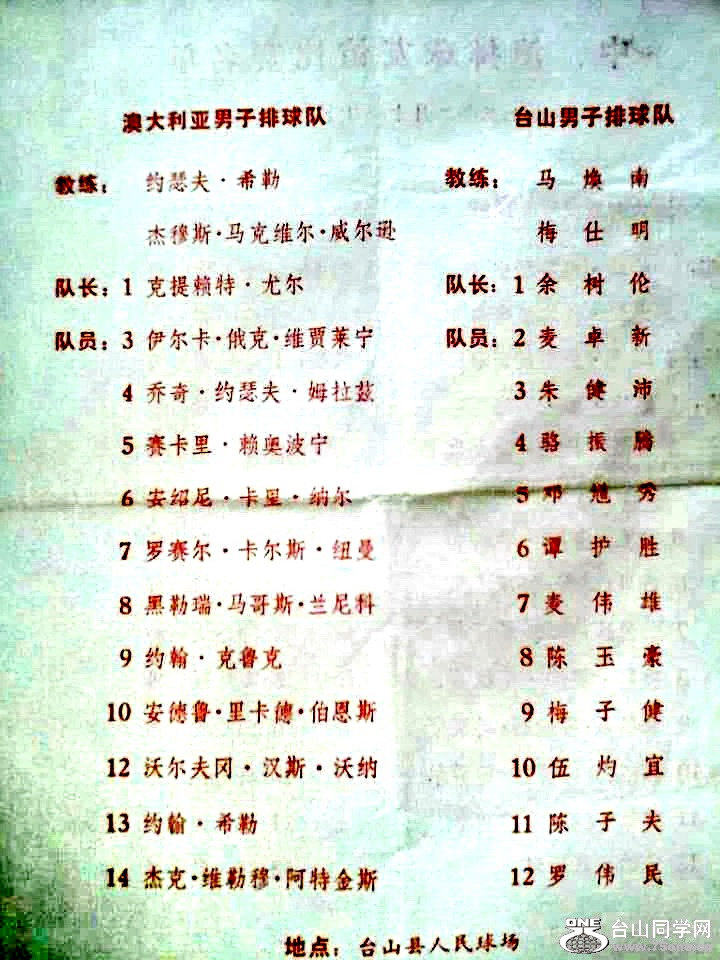 澳大利亚男子排球队 台山男子排球队
教练: 约瑟夫·希勒 教练: 马焕南
杰穆斯·马克维尔·威尔逊 梅仕明
队长: 1 克提赖特·尤尔 队长: 1 余树伦
队员: 3 伊尔卡·俄克·维贾莱宁 队员: 2 麦卓新
4 乔奇·约瑟夫·姆拉兹 3 朱健沛
5 赛卡里·赖奥波宁 4 骆振腾
6 安绍尼·卡里·纳尔 5 邓 秀
7 罗赛尔·卡尔斯·纽曼 6 谭护胜
8 黑勒瑞·马哥斯·兰尼科 7 麦伟雄
9 约翰·克鲁克 8 陈玉豪
10 安德鲁·里卡德·伯恩斯 9 梅子健
12 沃尔夫冈·汉斯·沃纳 10 伍灼宜
13 约翰·希勒 11 陈子夫
14 杰克·维勒穆·阿特金斯 12 罗伟民
地点: 台山县人民球场
ONE 台山同学网